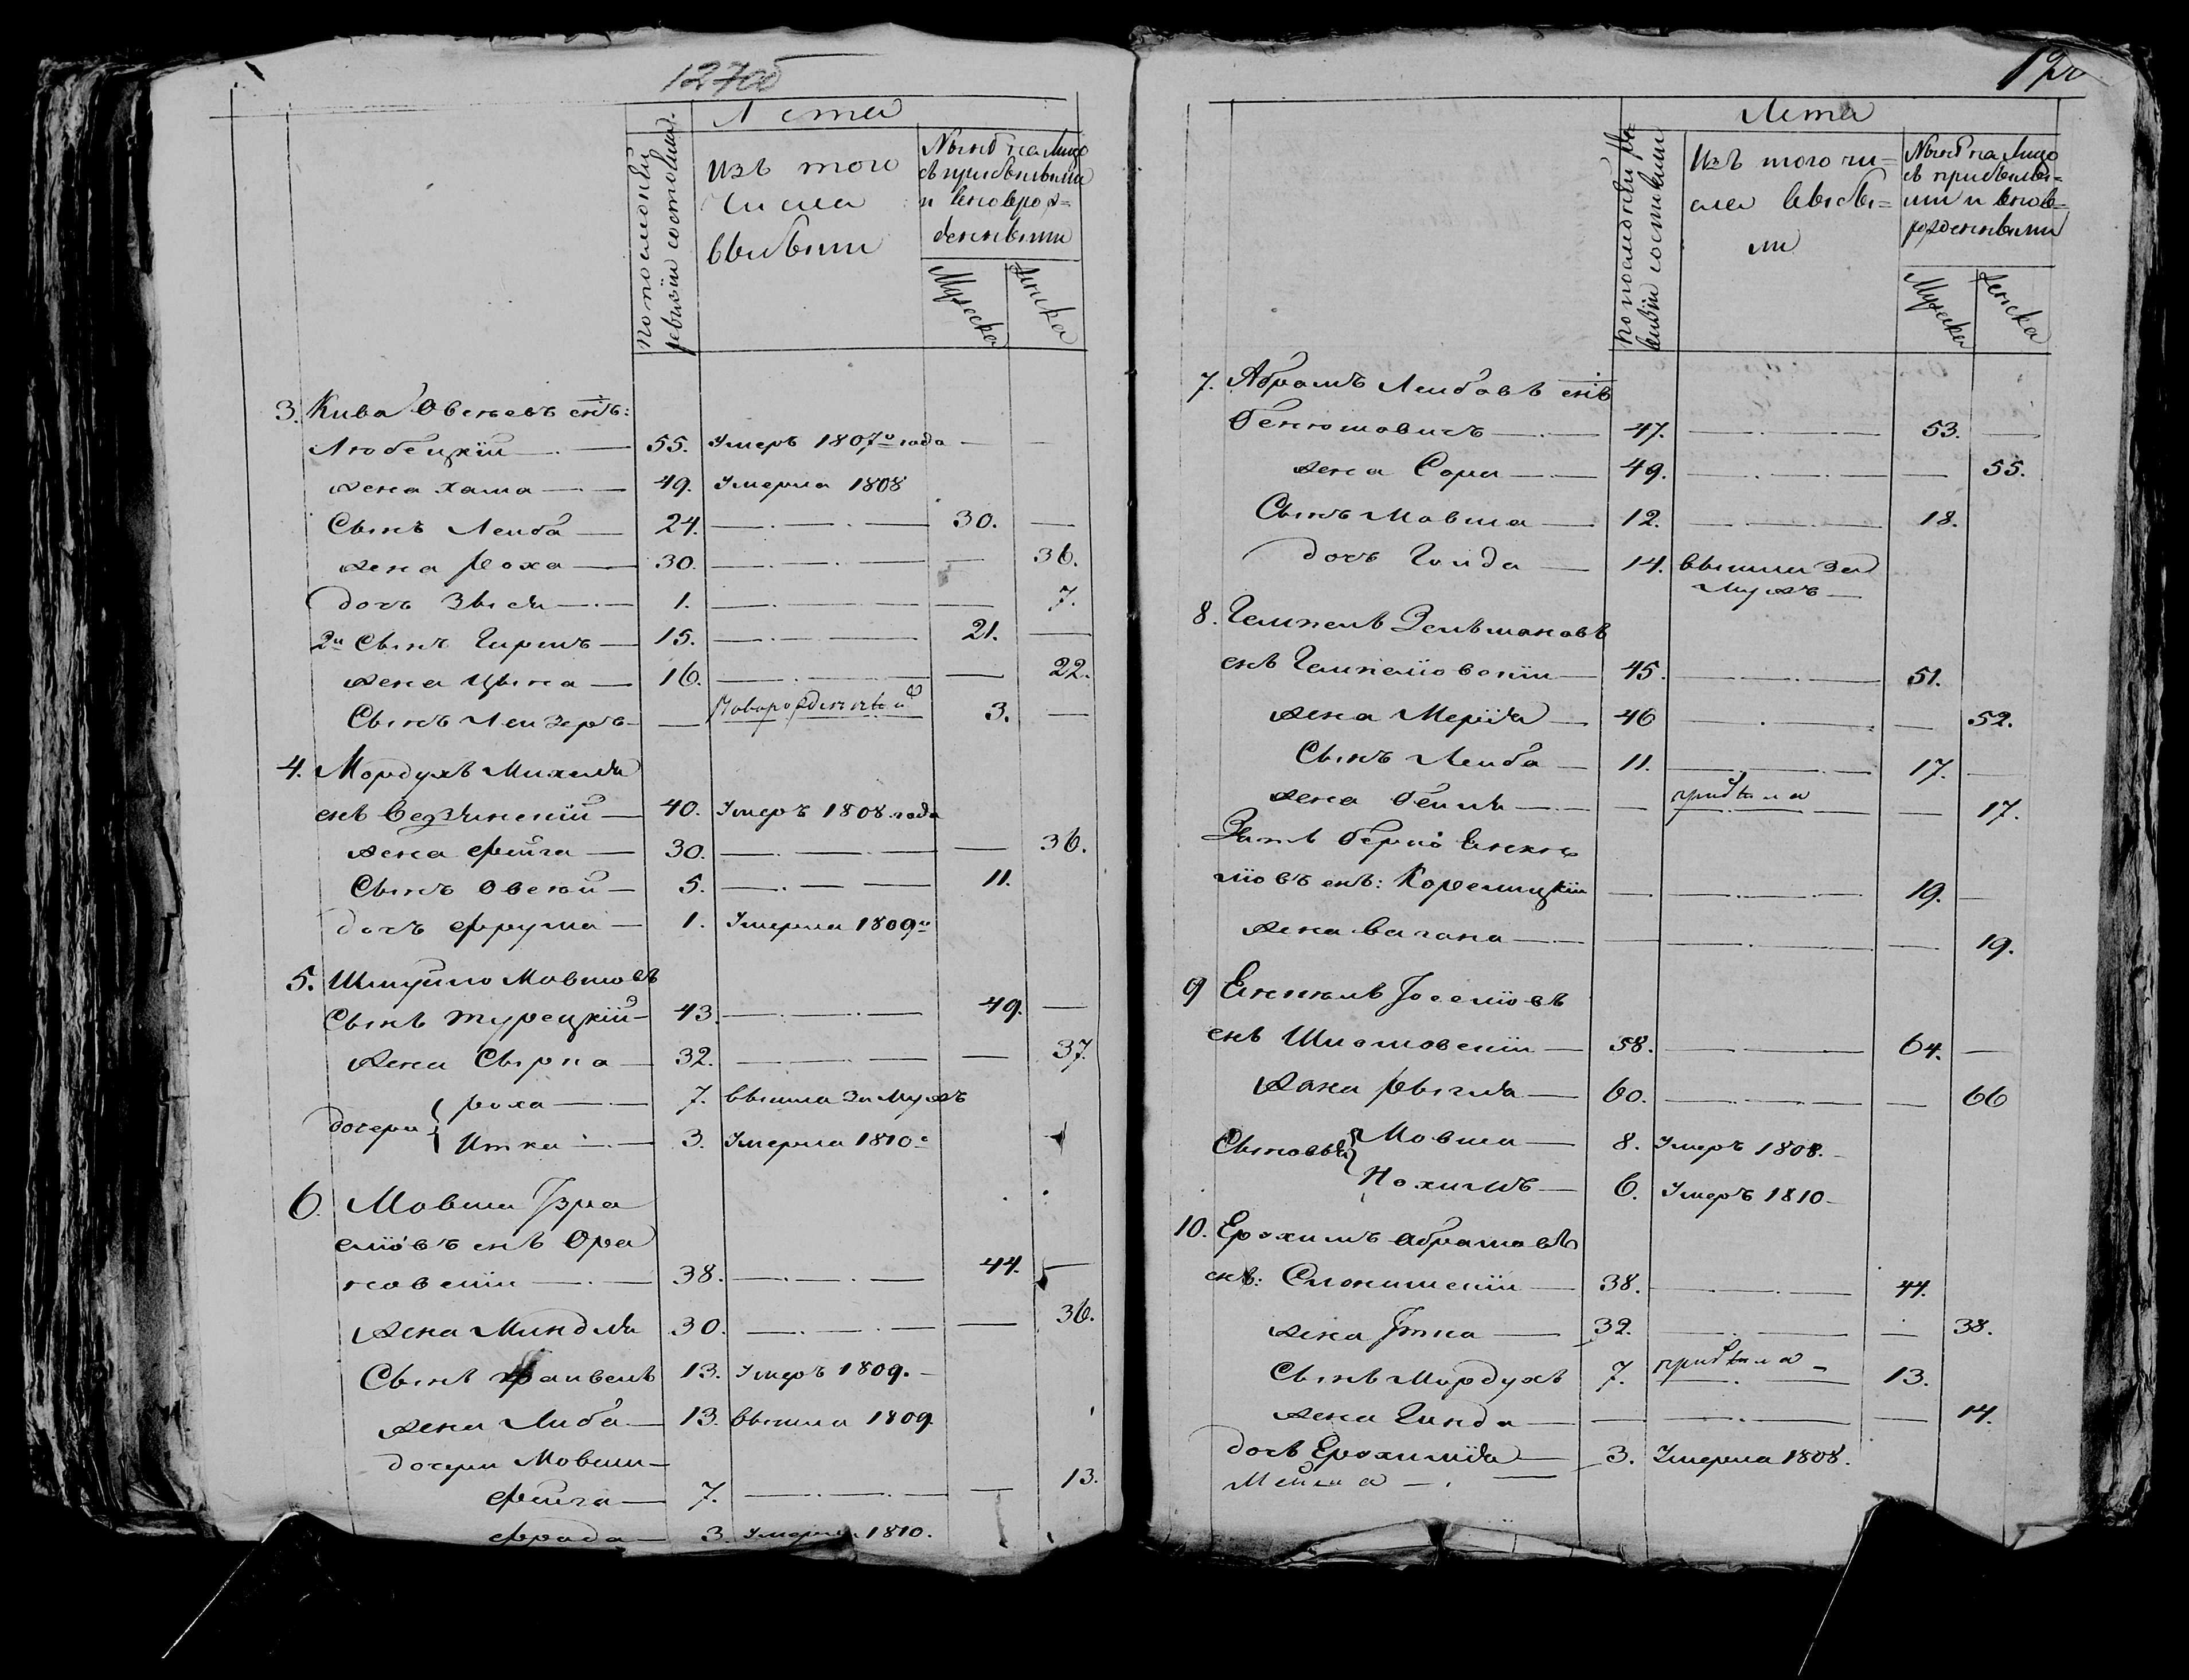 127об
Лета
по последней ревизии состояли
Изъ того
числа
выбыли
Ныне на Лицо
съ прибылыми
и вновърож=
денными
Мужеска
Женска
3. Кива Овсеевъ снъ:
Любецкій — 55. Умеръ 1807го года — —
жена Хама — 49. Умерла 1808
Сынъ Лейба — 24. — 30. —
жена Роха — 30. — — 36.
дочь Звися — 1. — — 7.
2й Сынъ Гиршъ — 15. — 21. —
жена Цына — 16. — — 22.
Сынъ Лейзеръ — — Новорожденный 3. —
4. Мордухъ Михеля
снъ — 40. Умеръ 1808 года
жена Фейга — 30. — — 36.
Сынъ Овсей — 5. — 11.
дочь Фрума — 1. Умерла 1809го
5. Шмуйло Мовшовъ
Сынъ Турецкій — 43. — 49. —
Жена Сырка — 32. — — 37.
дочери { Роха — 7. вышла за Мужъ
Итка — 3. Умерла 1810
6. Мовша Изра
еліовъ снъ Ора
новскіи — 38. — 44. —
Жена Миндля 30. — — 36.
Сынъ Файвель 13. Умеръ 1809. —
жена Либа — 13. вышла 1809
дочери Мовши —
Фейга — 7. — — 13.
Фрада — 3. Умерла 1810.
Лета
по последней ревизіи состояли
Изъ того чи=
сла выбы=
ли
Ныне на Лицо
съ прибылы=
ми и внов=
рожденными
Мужеска
Женска
7. Абрамъ Лейбовъ снъ
Бенюмовичъ — 47. — 53. —
жена Сора — 49. — — 55.
Сынъ Мовша — 12. — 18.
дочь Голда — 14. вышла за
Мужъ —
8. Гемпель Зельмановъ
снъ Гемпеліовскіи — 45. — 51.
жена Мерія — 46 — — 52.
Сынъ Лейба — 11. — 17. —
жена Бейля — — прибыла — 17.
Зять Берко Янке
ліовъ снъ: Корелицкіи — — 19. —
жена Вагана — — — — 19.
9 Янкель Іоселіовъ
снъ Шиомовскіи — 58. — 64. —
Жана Рыгля — 60. — — 66
Сыновья { Мовша — 8. Умеръ 1808. —
Нохимъ — 6. Умеръ 1810 —
10. Ерохимъ Абрамовъ
снъ: Слонимскіи — 38. — 44.
жена Итка — 32. — — 38.
Сынъ Мордухъ 7. прибыла — 13.
жена Гинда — — — — 14.
дочь Ерохимія — 3. Умерла 1808.